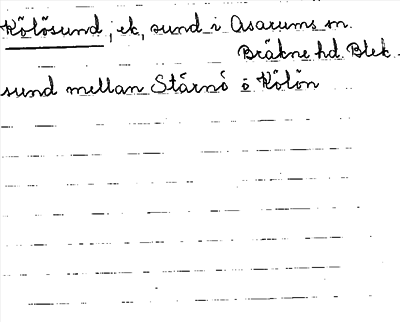 Kölösund, ek, sund i Asarums sn.
Bräkne hd. Blek.
sund mellan Stärnö o Kölön